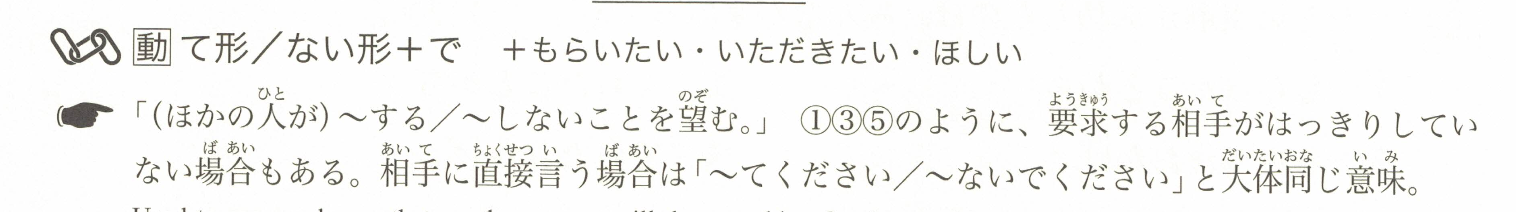 動て形／ない形＋で　＋もらいたい・いただきたい・ほしい
「(ほかの人が)～する／～しないことを望む。」　①③⑤のように、要求する相手がはっきりしてい
ない場合もある。相手に直接言う場合は「～てください／～ないでください」と大体同じ意味。